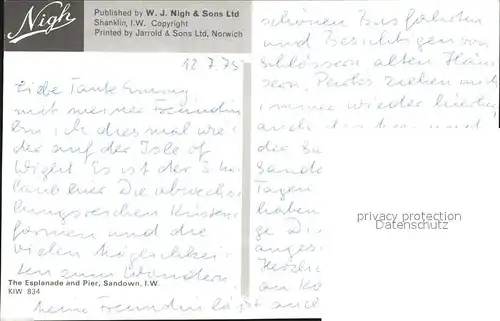 Nigh
Published by W. J. Nigh & Sons Ltd
Shanklin, I.W. Copyright
Printed by Jarrold & Sons Ltd, Norwich
12.7.75
Liebe Tante Emmy,
mit meiner Freundin
bin ich dies mal wie
der auf der Isle of
Wight Es ist der
laub hier Die abwechs
lungsreichen Küsten
formen und die
vielen Möglichkei
ten zum Wandern,
The Esplanade and Pier, Sandown, I.W.
KIW 834
Meine Freundin läßt auch
schönen Busfahrten
und Besichtigen von
Schlössern alten Häu
sern, ziehen mich
immer wieder hierher
auch
der
Tagen
haben
privacy protection
Datenschutz